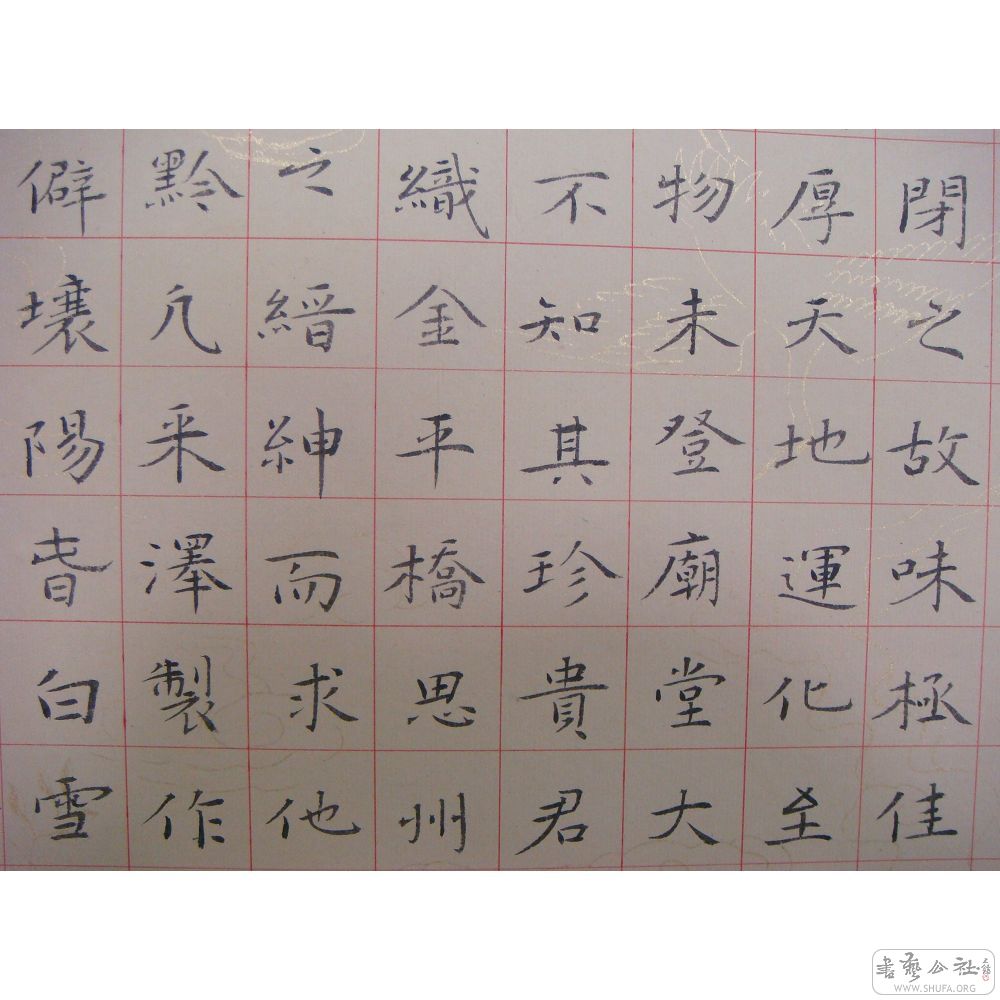 閉之故味極佳
厚天地運化至
物未登廟堂大
不知其珍貴君
織金平橋思州
之縉紳而求他
黔凡采澤製作
僻壤陽春白雪
書藝公社
WWW.SHUFA.ORG